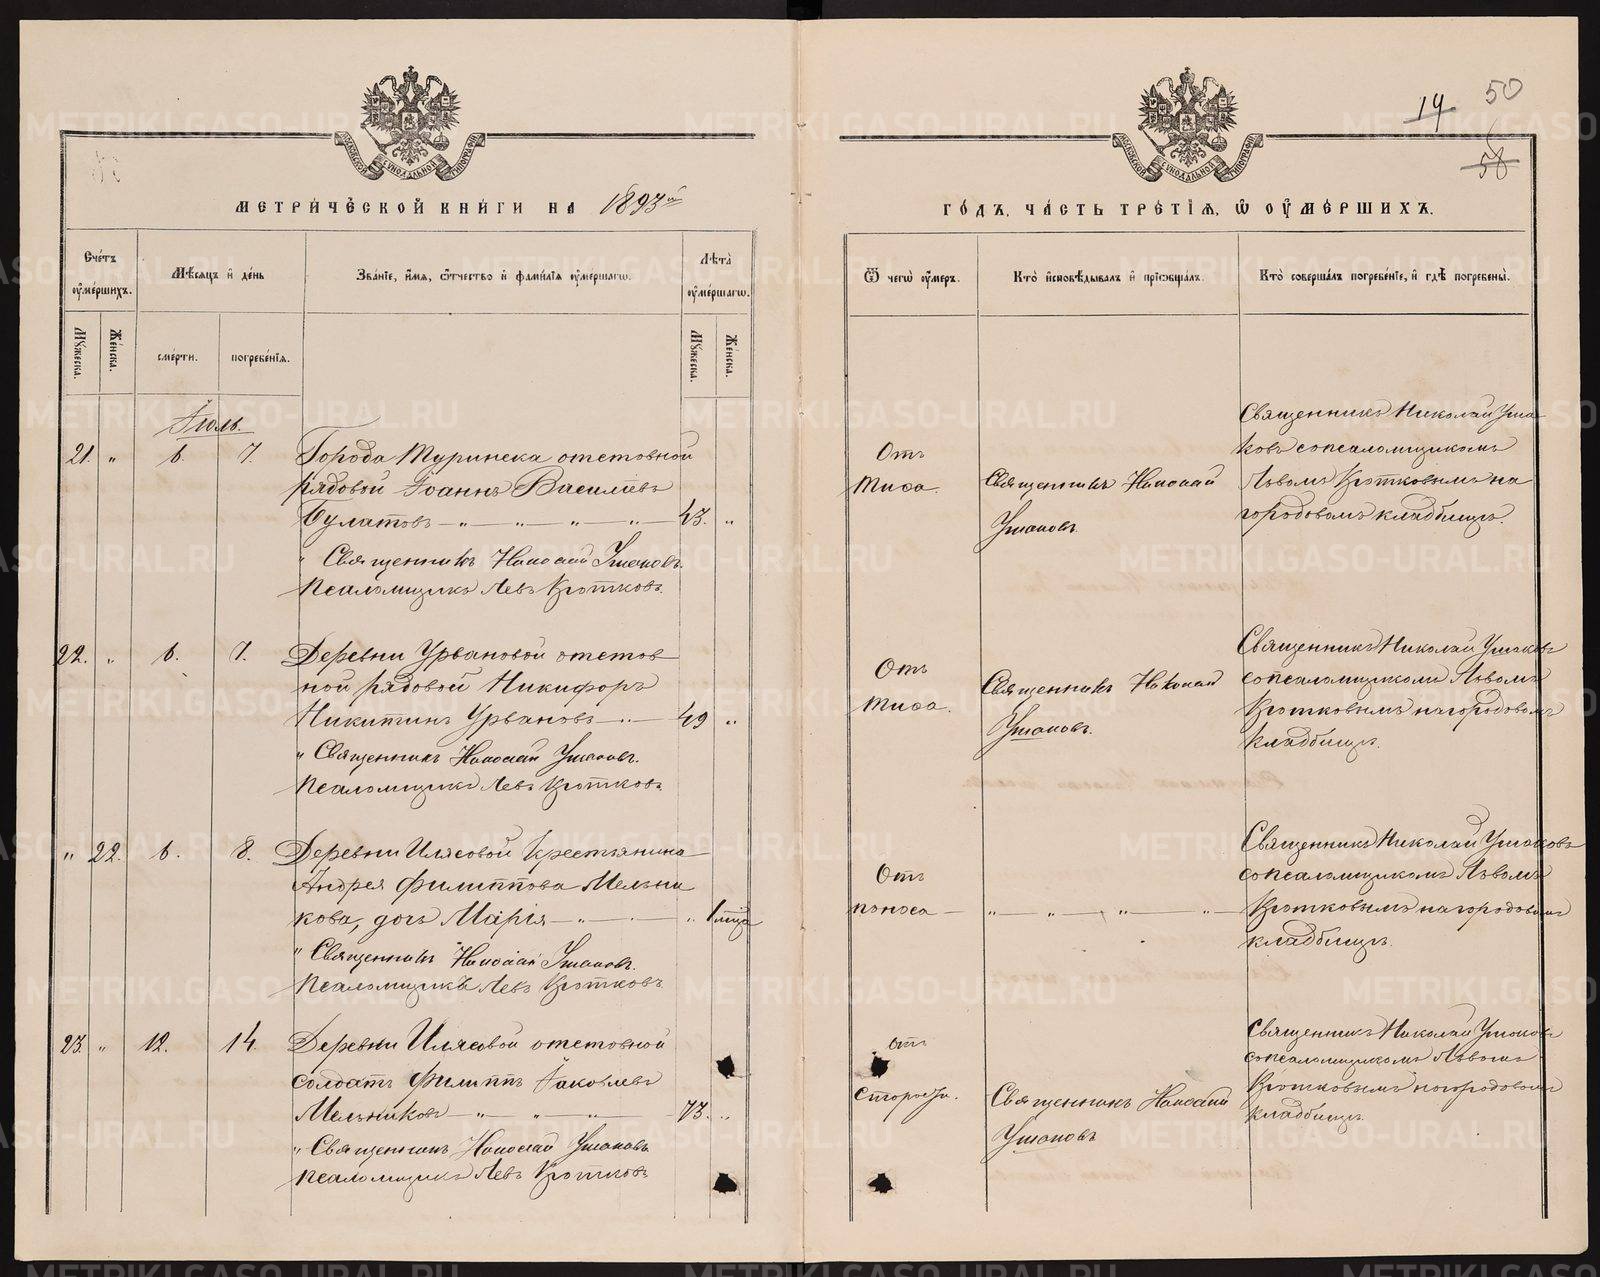 14
50
58
МЕТРИ́ЧЕСКОЙ КНИ́ГИ НА 1893й
ГО́ДЪ, ЧА́СТЬ ТРЕ́ТІЯ, Ѡ ОУМЕ́РШИХЪ.
Сче́тъ оуме́ршихъ.
Мѣ́сяцъ и де́нь
Зва́ніе, и́мя, о́тчество и фами́лія оуме́ршагѡ.
Лѣ́та оуме́ршагѡ.
Ѿ чегѡ̀ оу́меръ.
Кто̀ исповѣ́дывалъ и прїѡбща́лъ.
Кто̀ соверша́лъ погребе́ніе, и гдѣ̀ погребены̀.
Мꙋ́жеска.
Же́нска.
сме́рти.
погребе́нія.
Мꙋ́жеска.
Же́нска.
Іюль.
21. " 6. 7. Города Туринска отставной
рядовой Іоаннъ Василіевъ
Булатовъ — " — " — " — " — 43. "
" Священникъ Николай Ушаковъ.
Псаломщикъ Левъ Кротковъ.
Отъ
тифа.
Священникъ Николай
Ушаковъ.
Священникъ Николай Уша
ковъ съ псаломщикомъ
Львомъ Кротковымъ на
городовомъ кладбищѣ.
22. " 6. 7. Деревни Урвановой отстав
ной рядовой Никифоръ
Никитинъ Урвановъ — " — 49 "
" Священникъ Николай Ушаковъ.
Псаломщикъ Левъ Кротковъ.
Отъ
тифа.
Священникъ Николай
Ушаковъ.
Священникъ Николай Ушаковъ
съ псаломщикомъ Львомъ
Кротковымъ на городовомъ
кладбищѣ.
" 22. 6. 8. Деревни Илясовой крестьянина
Андрея Филиппова Мельни
кова, дочь Марія — " — " 1 мѣся
" Священникъ Николай Ушаковъ.
Псаломщикъ Левъ Кротковъ
Отъ
поноса — " " " "
Священникъ Николай Ушаковъ
съ псаломщикомъ Львомъ
Кротковымъ на городовомъ
кладбищѣ.
23. " 12. 14. Деревни Илясовой отставной
солдатъ Филиппъ Іаковлевъ
Мельниковъ — " — " — " — 73. "
" Священникъ Николай Ушаковъ
псаломщикъ Левъ Кротковъ
Отъ
старости.
Священникъ Николай
Ушаковъ
Священникъ Николай Ушаковъ
съ псаломщикомъ Львомъ
Кротковымъ на городовомъ
кладбищѣ.
METRIKI.GASO-URAL.RU